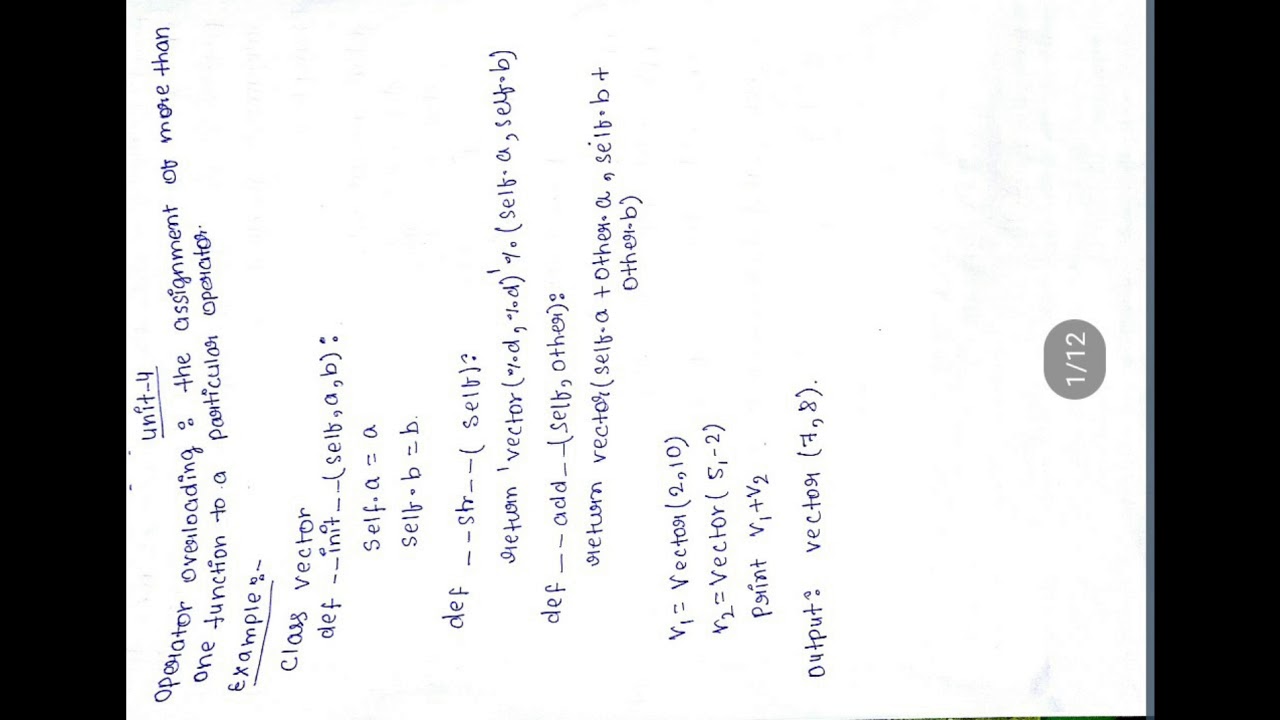 unit-4
Operator overloading : the assignment of more than
one function to a particular operator.
Example:-
Class vector
def --init--(self,a,b):
self.a = a
self.b = b.
def --str--( self):
return 'vector(%d,%d)'%(self.a, self.b)
def --add--(self, other):
return vector(self.a + other.a, self.b +
other.b)
v1 = Vector(2,10)
v2 = Vector( 5,-2)
print v1+v2
Output: vector (7,8).
1/12